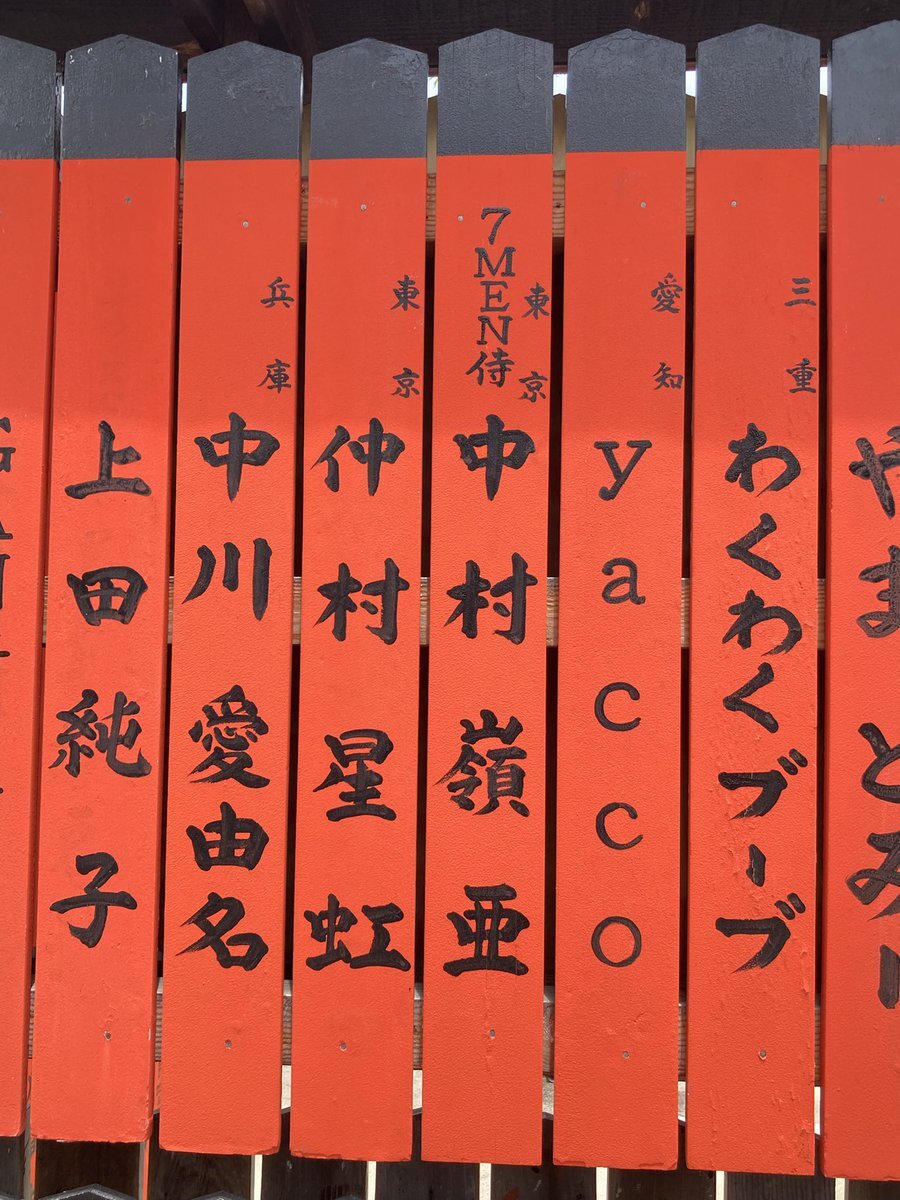 やまもとみ
三重
わくわくブーブ
愛知
yacco
東京
7MEN侍
中村嶺亜
東京
仲村星虹
兵庫
中川愛由名
上田純子